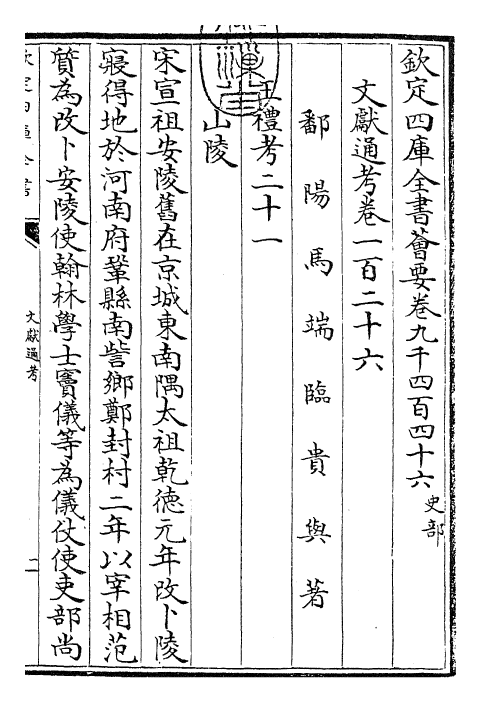 欽定四庫全書薈要卷九千四百四十六 史部
文獻通考卷一百二十六
鄱陽馬端臨貴與著
王禮考二十一
山陵
宋宣祖安陵舊在京城東南隅太祖乾德元年改卜陵
寢得地於河南府鞏縣南訾鄉鄭封村二年以宰相范
質為改卜安陵使翰林學士竇儀等為儀仗使吏部尚
欽定四庫全書
文獻通考